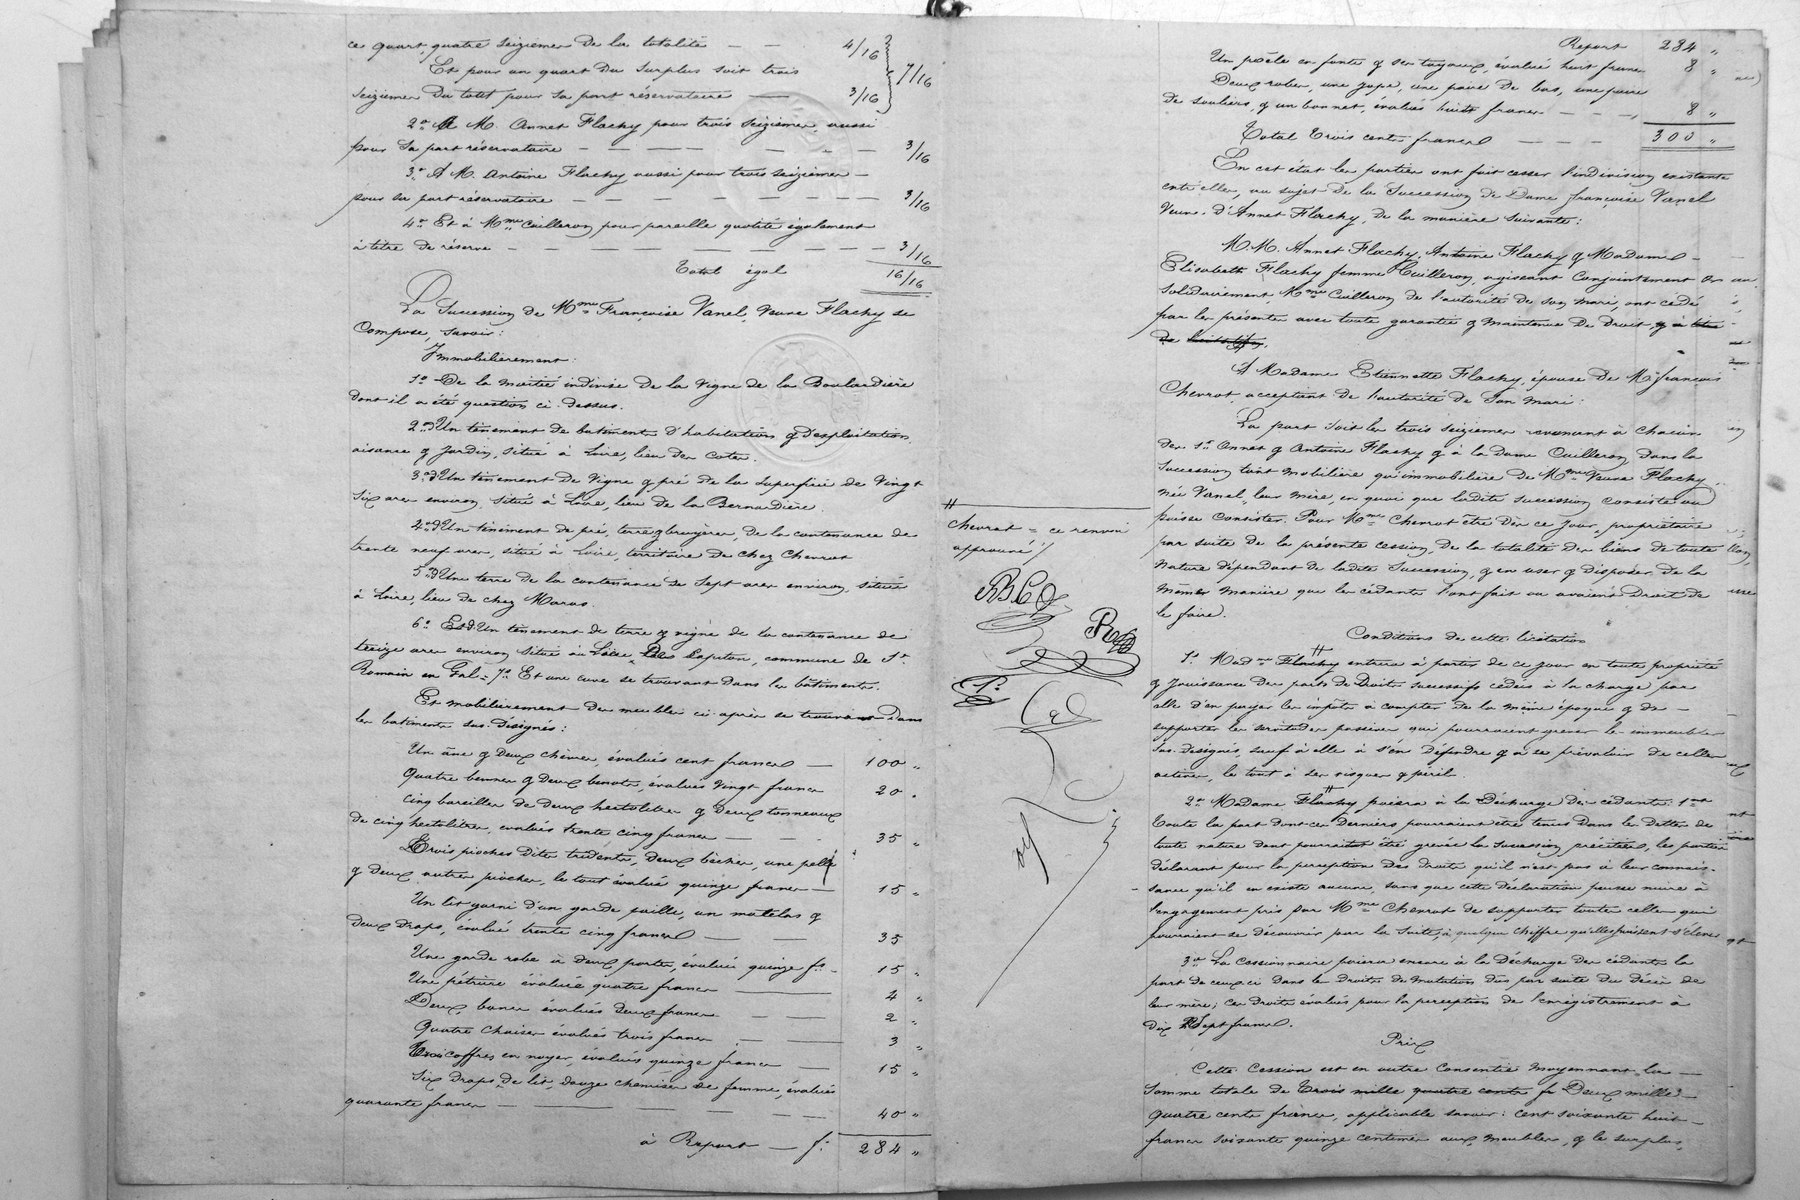 ce quart, quatre seizièmes de la totalité — — 4/16
Et pour un quart du surplus soit trois 7/16
seizièmes du tout pour sa part réservataire — 3/16
2o A M. Annet Flachy pour trois seizièmes, aussi
pour sa part réservataire — — — — — — — 3/16
3o A M. Antoine Flachy aussi pour trois seizièmes —
pour sa part réservataire — — — — — — — — 3/16
4o Et à Mme Cuilleron pour pareille quotité également
à titre de réserve — — — — — — — — — 3/16
Total égal 16/16
La Succession de Mme Françoise Vanel, Veuve Flachy se
Compose, savoir:
Immobilièrement:
1o De la moitié indivise de la vigne de la Boulardière
dont il a été question ci-dessus.
2o d'Un tènement de batiments d'habitation & d'exploitation,
aisance & jardin, situé à Loire, lieu des Cotes.
3o d'Un tènement de vigne & pré de la superficie de Vingt
six ares environ, situé à Loire, lieu de la Bernardière.
4o d'Un tènement de pré, terre & bruyères, de la contenance de
trente neuf ares, situé à Loire, territoire de chez Chevrot
5o d'Une terre de la contenance de sept ares environ, située
à Loire, lieu de chez Maras.
6o Et d'Un tènement de terre & vigne de la contenance de
treize ares environ situé au commune de St
Romain en Gal = 7o Et une cuve se trouvant dans les bâtiments.
Et mobilièrement des meubles ci-après se trouvant dans
les batiments sus-désignés:
Un âne & deux chèvres, évalués cent francs — 100 "
Quatre bennes & deux benots, évalués vingt francs 20 "
Cinq bareilles de deux hectolitres & deux tonneaux
de cinq hectolitres, évalués trente cinq francs — — 35 "
Trois pioches dites tridents, deux bêches, une pelle
& deux autres pioches, le tout évalué quinze francs — 15 "
Un lit garni d'un garde paille, un matelas &
deux draps, évalué trente cinq francs — — 35
Une garde robe à deux portes, évaluée quinze fs — 15 "
Une pétrière évaluée quatre francs — 4 "
Deux bancs évalués deux francs — — 2 "
Quatre chaises évaluées trois francs — — 3 "
Trois coffres en noyer, évalués quinze francs — 15 "
Six draps de lit, douze chemises de femme, évalués
quarante francs — — — — — — 40 "
à Report — f. 284 "
Chevrot = ce renvoi
approuvé /.
Report 284 "
Un poêle en fonte & ses tuyaux, évalué huit francs 8 "
Deux robes, une jupe, une paire de bas, une paire
de souliers, & un bonnet, évalués huit francs — — — 8 "
Total Trois cents francs — — — 300 "
En cet état les parties ont fait cesser l'indivision existante
entr'elles, au sujet de la Succession de Dame françoise Vanel
Veuve d'Annet Flachy, de la manière suivante:
M.M. Annet Flachy, Antoine Flachy & Madame —
Elisabeth Flachy femme Cuilleron, agissant conjointement &
solidairement, Mme Cuilleron de l'autorité de son mari, ont cédé
par les présentes avec toute garantie & maintenue de droit & à titre
de licitation,
A Madame Etiennette Flachy, épouse de Mr françois
Chevrot, acceptant de l'autorité de son mari:
La part soit les trois seizièmes revenant à chacun
des Srs Annet & Antoine Flachy & à la Dame Cuilleron, dans la
succession tant mobilière qu'immobilière de Mme Veuve Flachy
née Vanel, leur mère, en quoi que ladite succession consiste ou
puisse consister. Pour Mme Chevrot être dès ce jour, propriétaire
par suite de la présente cession, de la totalité des biens de toute
nature dépendant de ladite Succession, & en user & disposer de la
même manière que les cédants l'ont fait ou avaient droit de
le faire.
Conditions de cette licitation
1o Made Flachy entrera à partir de ce jour en toute propriété
& jouissance des parts de droits successifs cédées à la charge par
elle d'en payer les impôts à compter de la même époque & de —
supporter les servitudes passives qui pourraient grever les immeubles
sus-désignés, sauf à elle à s'en défendre & à se prévaloir de celles
actives, le tout à ses risques & péril.
2o Madame Flachy paiera à la décharge des cédants
toute la part dont ces derniers pourraient être tenus dans les Dettes de
toute nature dont pourrait être grévée la succession précitée, les parties
déclarant pour la perception des droits qu'il n'est pas à leur connais-
sance qu'il en existe aucune, sans que cette déclaration puisse nuire à
l'engagement pris par Mme Chevrot de supporter toutes celles qui
pourraient se découvrir par la suite, à quelque chiffre qu'elles puissent s'élever
3o La Cessionnaire paiera encore à la décharge des cédants la
part de ceux-ci dans les droits de mutation dus par suite du décès de
leur mère; ces droits évalués pour la perception de l'enregistrement à
dix Sept francs.
Prix
Cette Cession est en outre Consentie moyennant la —
somme totale de Trois mille quatre cents fs Deux mille —
Quatre cents francs, applicable savoir: Cent soixante huit —
francs soixante quinze centimes aux meubles, & le surplus,